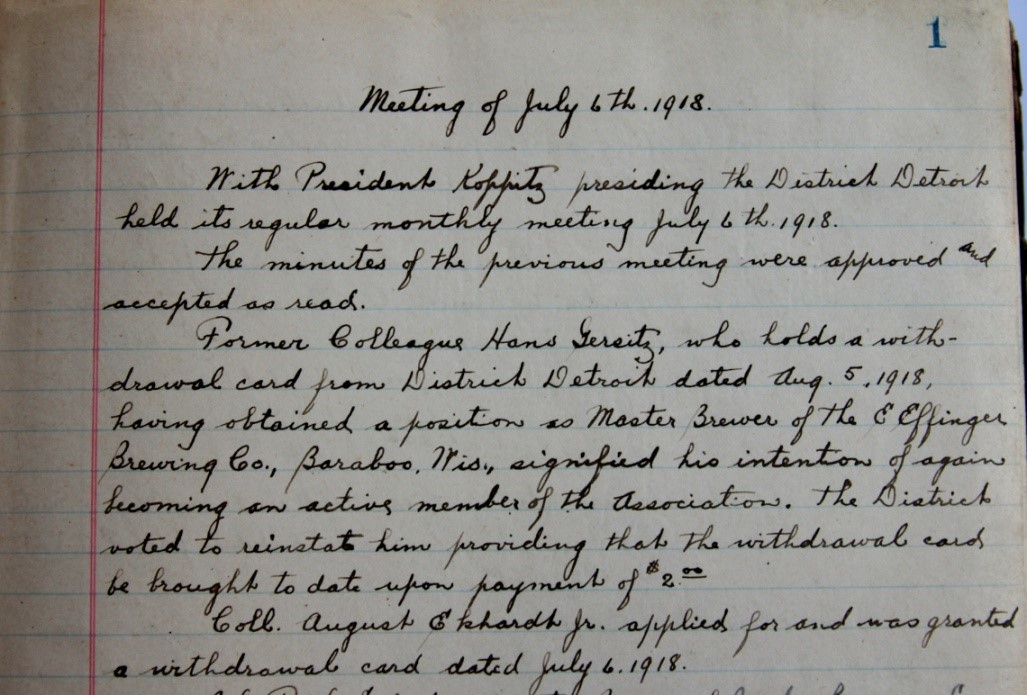 1
Meeting of July 6th. 1918.
With President Koppitz presiding the District Detroit
held its regular monthly meeting July 6th. 1918.
The minutes of the previous meeting were approved and
accepted as read.
Former Colleague Hans Gersitz, who holds a with-
drawal card from District Detroit dated Aug. 5, 1918,
having obtained a position as Master Brewer of the E Effinger
Brewing Co., Baraboo, Wis., signified his intention of again
becoming an active member of the Association. The District
voted to reinstate him providing that the withdrawal card
be brought to date upon payment of $2 00
Coll. August Ekhardt Jr. applied for and was granted
a withdrawal card dated July 6. 1918.